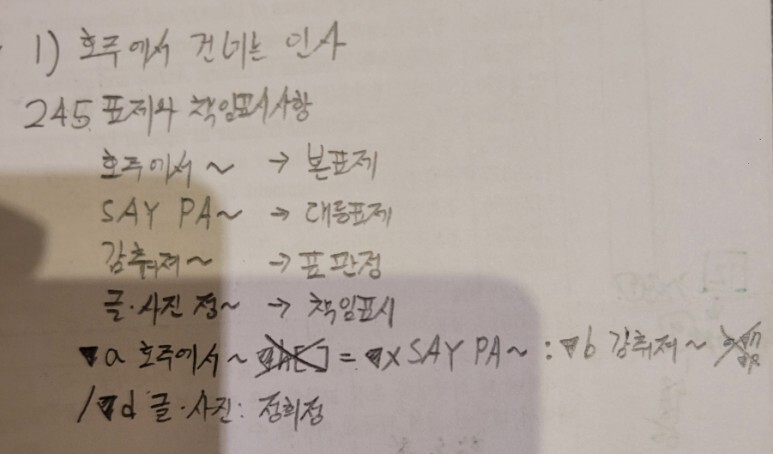 1) 호주에서 건네는 인사
245 표제와 책임표시사항
호주에서~ → 본표제
SAY PA~ → 대등표제
감춰져~ → 표판정
글·사진 정~ → 책임표시
▼a 호주에서~ = ▼x SAY PA~ : ▼b 감춰져~
/▼d 글·사진: 정희정